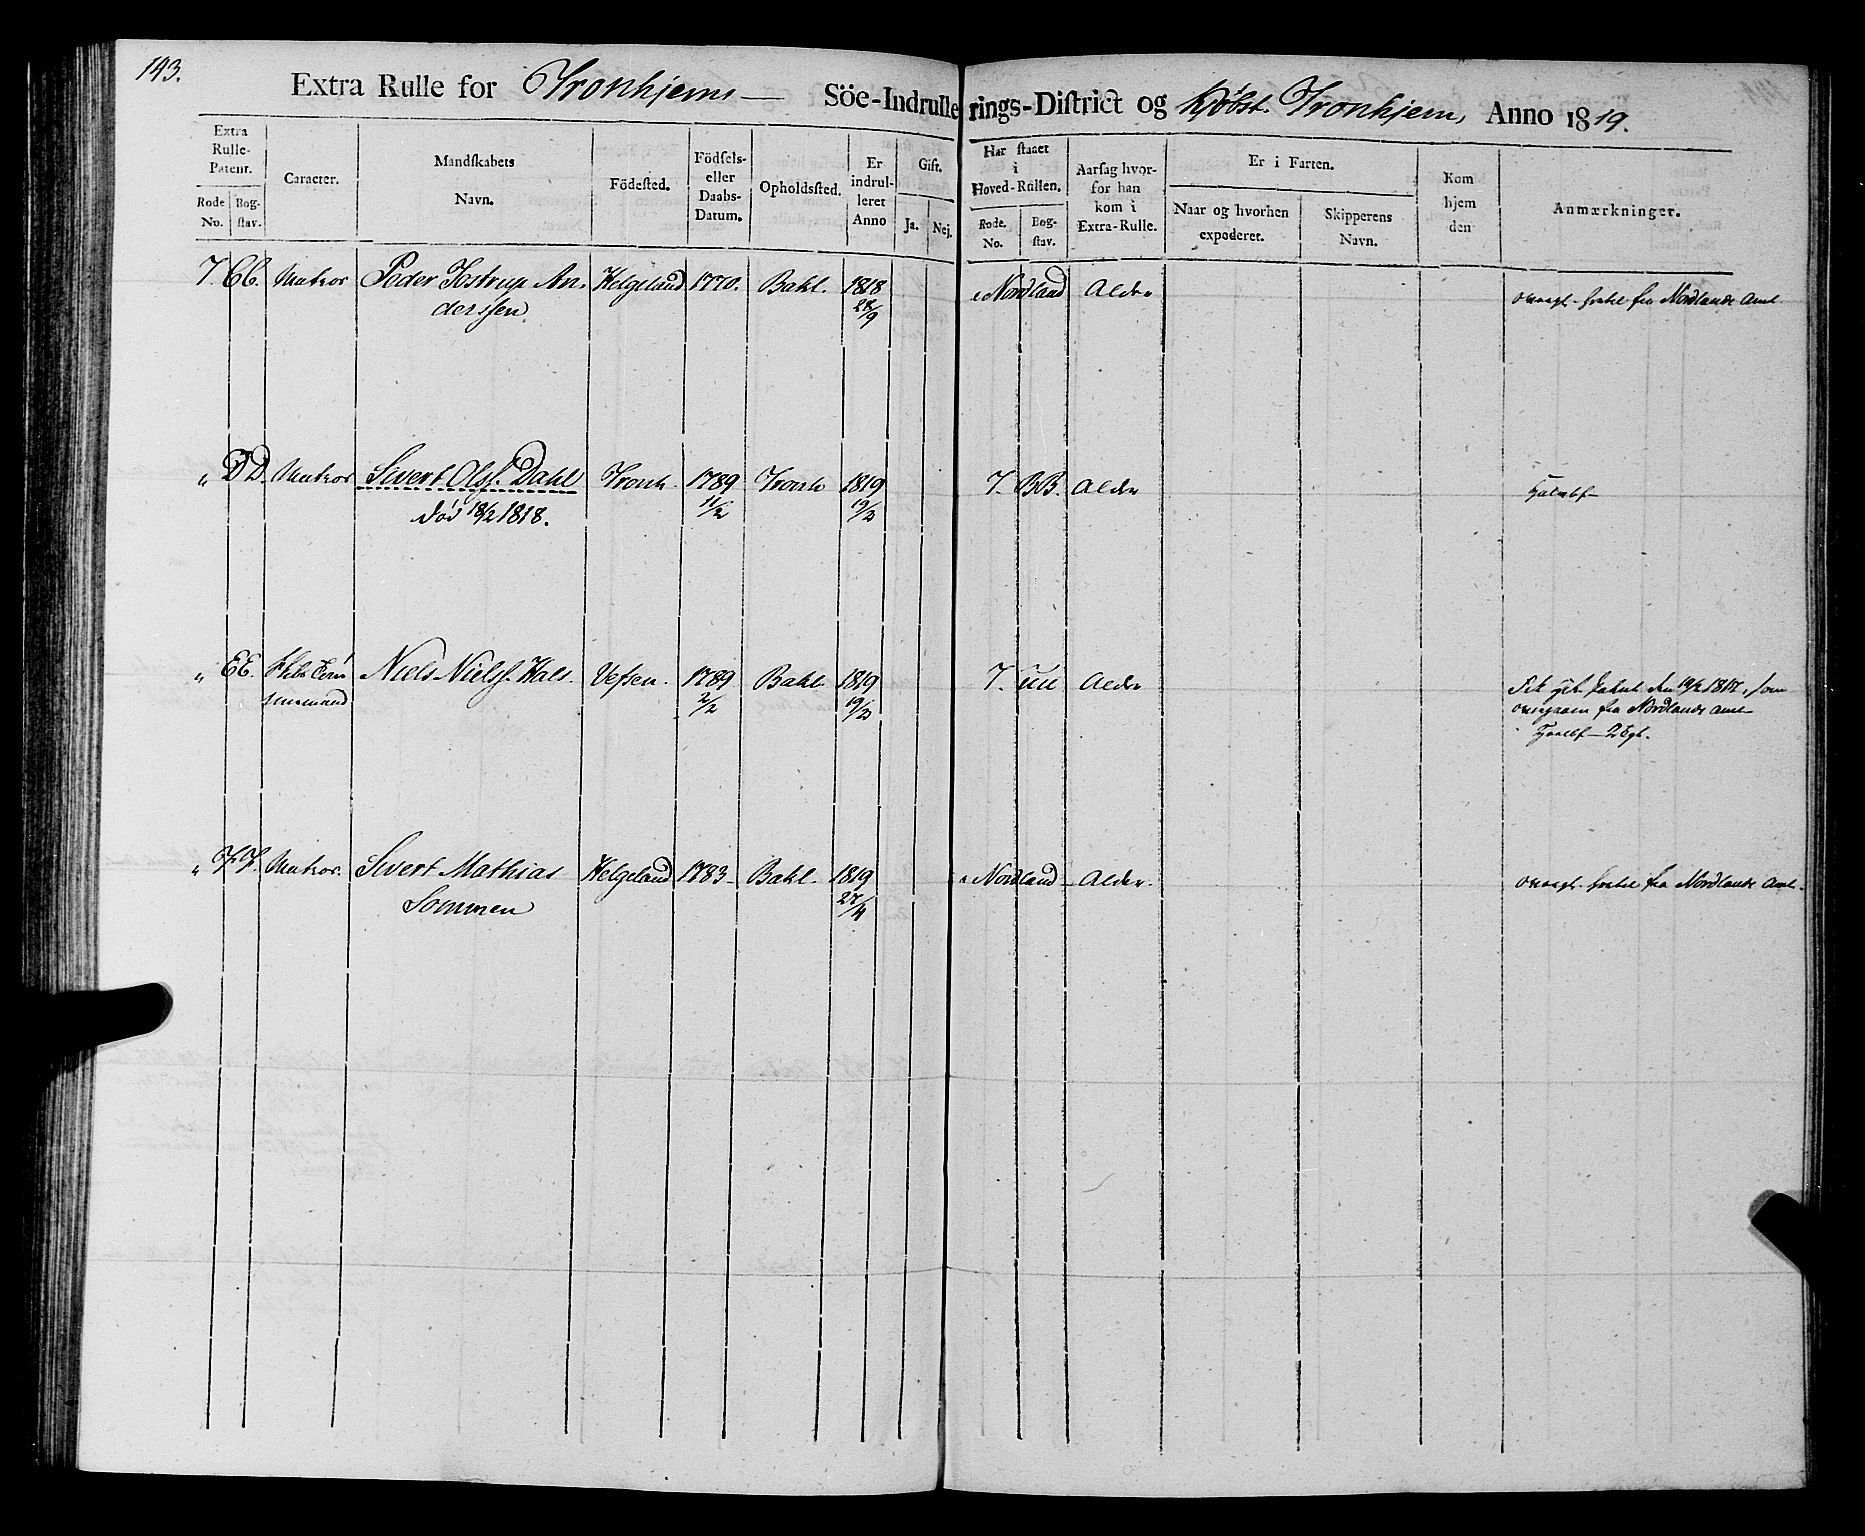 143.
Extra Rulle for Tronhjems Söe-Indrullerings-District og Kjöbst. Tronhjem, Anno 1819.
Extra Rulle-Patent. Rode No. Bogstav. Caracter. Mandskabets Navn. Födested. Födsels- eller Daabs-Datum. Opholdsted. Er indrulleret Anno Gift. Ja. Nej. Har staaet i Hoved-Rullen. Rode. No. Bogstav. Aarsag hvorfor han kom i Extra-Rulle. Er i Farten. Naar og hvorhen expederet. Skipperens Navn. Kom hjem den Anmærkninger.
7. CC. Matros Peder Jostrup An- Helgeland 1770. Bakl. 1818 Nordland Alder fra Nordlands Amt
derssen 28/9
" DD. Matros Sivert Olss. Dahl Tronh. 1789 Tronh 1819 7. BB. Alder
död 18/2 1818. 11/2 19/3
" EE. Niels Nielss. Hals. Vefsen. 1789 Bakl. 1819 7. UU Alder den 19/2 1817, som
mand 2/2 19/3 fra Nordlands Amt
" FF. Matros. Sivert Mathias Helgeland 1783 Bakl. 1819 Nordland Alder. fra Nordlands Amt.
Sommen 27/4